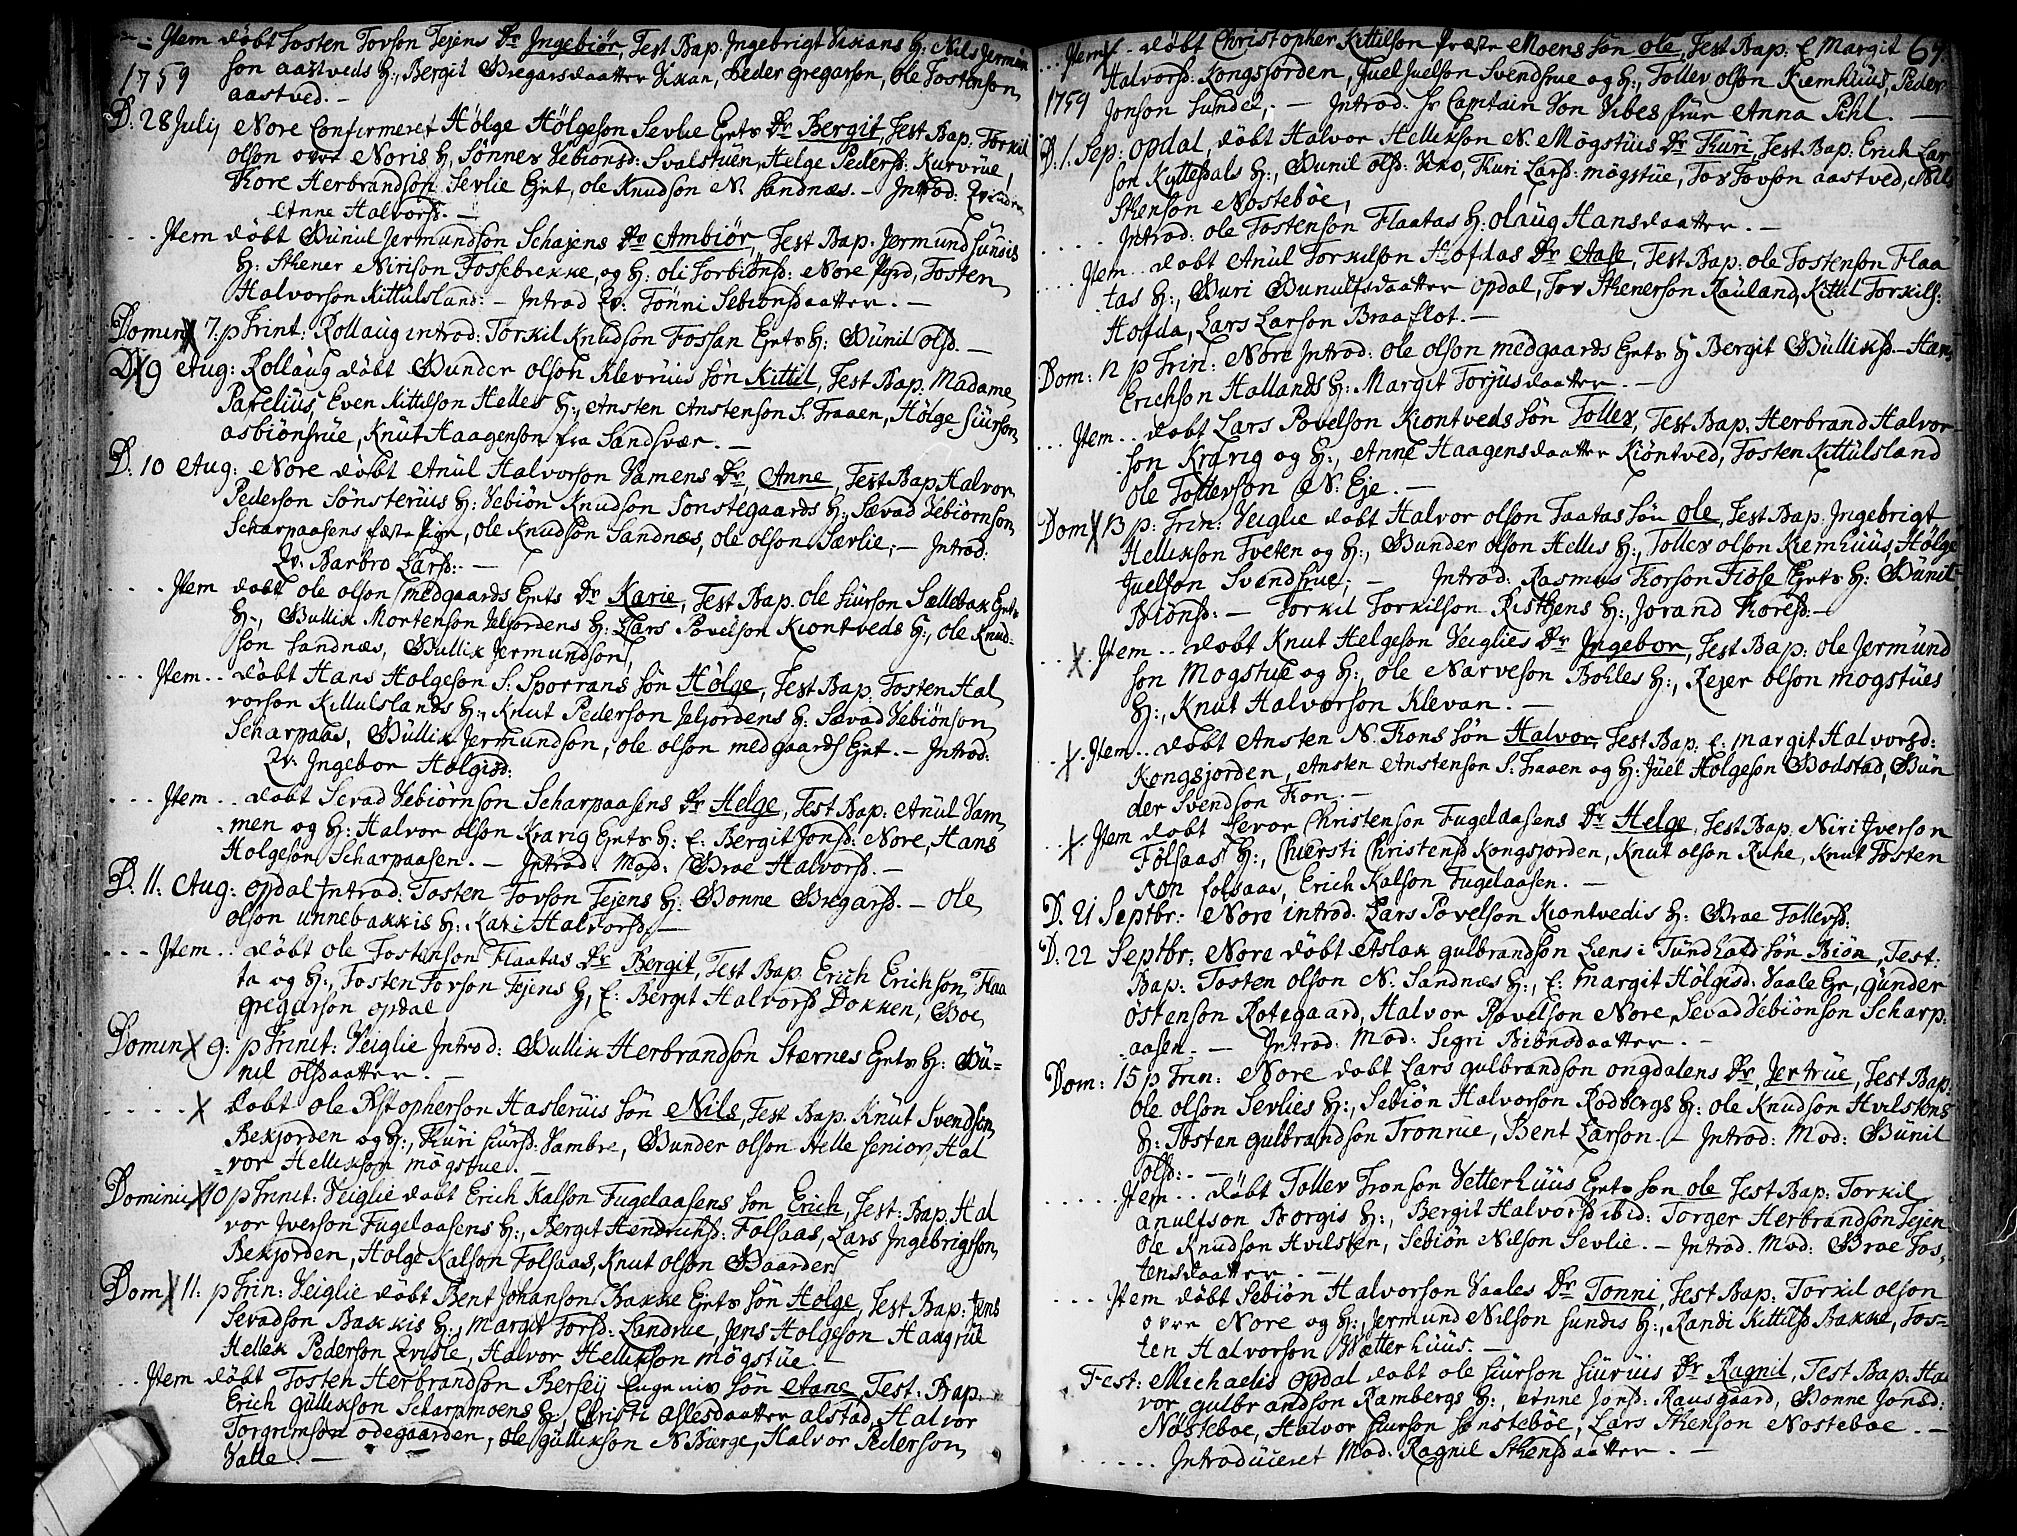 Jtem døbt Tosten Tovson Tejens Dr Ingebiør, Test Bap. Ingebrigt Vikans H: Nils Jermün
1759 son aastveds H:, Bergit Gregarsdaatter Vikan, Peder gregarson, Ole Tostenson
aastved. —
D: 28 Julij Nore Confirmeret Hölge Hölgeson Sevlie Ejets Dr Bergit, Test Bap: Torkil
olson ovre Noris H, Sönnev Vebionsd: Svalstuen, Helge Peders: Kurvrüe,
Thore Herbrandson Sevlie Ejet, ole Knudson N. Sandnæs. — Introd:
Anne Halvorsd. —
. . . Jtem døbt Günül Jermundson Schajens Dr Ambiør, Test Bap. Jermund Sündis
H: Sthener Nirison Fossebrekke, og H: oli Torbiönsd: Nore Pjrd, Tosten
Halvorson Kittülsland: — Introd Qv: Tönni Sebionsdaatter. —
Domin 7. p Trinit: Rollaug introd: Torkil Knudson Fossan Ejets H: Günil olsd. —
D. 9 Aug: Rollaug døbt Gunder olson Klevruis sön Kittil, Test Bap. Madame
Parelius, Even Kittilson Helles H:, Ansten Anstenson S. Traaen, Hölge Siurson
asbiönsrüe, Knüt Haagenson fra Sandsvær. —
D: 10 Aug: Nore døbt Anül Halvorson Vamens Dr Anne, Test Bap. Halvor
Pederson Sönsteruis H: Vebion Knudson Sonstegaards H:, Sævad Vebiornson
Scharpaasens fæste Pige, ole Knudson Sandnæs, ole olson Særlie, — Introd:
Qv. Barbro Larsd: —
. . . Jtem døbt ole olson medgaards Ejets Dr Karie, Test Bap. ole Siurson Sællebak Ejets
H:, Gullik Mortenson Jeljordens H: Lars Povelson Kiontveds H:, ole Knud-
son Sandnæs, Gullik Jermundson,
. . . Jtem . . døbt Hans Holgeson S. Sporrans sön Hölge, Test Bap. Tosten Hal
vorson Kittulslands H:, Knut Pederson Jeljordens H: Sævad Vebiönson
Scharpaas, Gullik Jermundson, ole olson medgaards Ejet. — Introd:
Qv: Ingebor Holgisd:
. . . Jtem . . døbt Sevad Vebiörnson Scharpaasens Dr Helge, Test Bap: Anül Vam
men og H: Halvor olson Kravig Ejets H: E: Bergit Jonsd: Nore, Hans
Holgeson Scharpaasen. — Introd. Mod: Groe Halvorsd. —
D. 11: Aug: Opdal Introd: Tosten Tovson Tejens H: Gonne Gregarsd. — Ole
olson unnebakkis H: Kari Halvorsd. —
. . . Jtem . . døbt ole Tostenson Flaatas Dr Bergit, Test Bap. Erich Erichson Flaa
ta og H:, Tosten Torson Tejens H, E: Bergit Halvorsd Dokken, Boe
gregarson opdal
Domin 9: p Trinit: Veiglie Introd: Gullik Herbrandson Stærnes Ejets H: Gü-
nil olsdaatter. —
. . . . . døbt ole Kstopherson Hasleruis sön Nils, Test Bap. Knüt Svendson
Bekjorden og H:, Thüri Siürsd. Vambre, Gunder olson Helle senior, Hal
vor Hellikson mögstue. —
Domini 10 p Trinit: Veiglie døbt Erich Kalson Fugelaasens sön Erich, Test: Bap. Hal
vor Jverson Fugelaasens H:, Bergit Hendrichsd: Folsaas, Lars Ingebrigtson
Bekjorden, Holge Kalson Folsaas, Knut olson Gaarder
Dom 11: p Trin: Veiglie døbt Bent Johanson Bakke Ejets sön Hölge, Test Bap: Jens
Sevadson Bakkis H:, Margit Torsd: Landrüe, Jens Holgeson Haagrüe
Hellek Pederson Qvisle, Halvor Hellikson mögstüe. —
. . Jtem døbt Tosten Herbrandson Bersej Eugeniv sön Aane, Test: Bap.
Erich güllikson Scharpmoens H, Christi Aslesdaatter alstad, Halvor
Torgrimson odegaarden, ole güllikson N Bierge, Halvor Pederson
Valle. —
. . . Jtem . . døbt Christopher Kittilson Præste Moens sön ole, Test Bap: E Margit 67.
1759 Halvorsd: Kongsjorden, Juel Juelson Svendsrue og H:, Tollev olson Kiemhuus, Peder
Jonson Sunde, — Introd: Hr Captain Von Vibes früe Anna Pihl. —
D. 1 Sep: opdal, døbt Halvor Hellikson N. Mögstuis Dr Thuri, Test Bap: Erich Lar
son Kyttesdals H:, Gunil olsd: Uro, Thuri Larsd: mögstüe, Tov Tovson aastved, Nils
Sthenson Nösteböe,
. . . . . Introd: ole Tostenson Flaatas H: olaug Hansdaatter. —
. . . . Jtem . . døbt Anül Torkilson Hofdas Dr Aase, Test Bap: ole Tostenson Flaa
tas H:, Guri Gunulfsdaatter opdal, Tov Sthenerson Rauland, Kittil Torkilss:
Hofda, Lars Larson Braaflot. —
Dom: 12 p Trin: Nore Introd: ole olson medgaards Ejets H Bergit Gülliksd — Hans
Erichson Hallands H: Margit Torjüsdaatter. —
. . . Jtem . . døbt Lars Povelson Kiontveds sön Tollev, Test Bap: Herbrand Halvor
son Kravig og H:, Anne Haagensdaatter Kiöntved, Tosten Kittülsland
ole Tolleveson N. Eje. —
Dom 13 p: Trin: Veiglie døbt Halvor olson Taatas sön ole, Test Bap: Ingebrigt
Hellikson Tveten og H:, Gunder olson Helles H:, Tollev olson Kiemhüüs, Hölge
Juelson Svendsrue; — Introd: Rasmus Thorson Flöse Ejets H: Günil
Biönsd: — Torkil Torkilson Risthens H:, Jorand Thoresd: —
. . . Jtem . . døbt Knüt Helgeson Veiglies Dr Ingebor, Test Bap: ole Jermünd
son Mogstue og H:, ole Narveson Bohles H:, Rejer olson mogstües
H:, Knut Halvorson Klevan. —
. . . Jtem . . døbt Ansten N. Thons sön Halvor, Test Bap. E: margit Halvorsd:
Kongsjorden, Ansten Anstenson S. Traaen og H: Jüel Holgeson Bodstad, Gün
der Svendson Thon. —
. . . Jtem døbt Levor Christenson Fugelaasens Dr Helge, Test Bap. Niri Jverson
Folsaas H:, Chiersti Christensd Kongsjorden, Knut olson Ruhe, Knut Tosten
son folsaas, Erich Kalson Fugelaasen. —
D. 21 Septbr: Nore introd: Lars Povelson Kiontvedis H: Groe Tollevsd:
D: 22 Septbr: Nore døbt Aslak gulbrandson Liens i Tündhøfd sön Biön, Test:
Bap: Tosten olson N. Sandnæs H:, E: margit Hölgisd: Vaale Ejr, günder
östenson Rotegaard, Halvor Povelson Nore, Sevad Vebiönson Scharp:
aasen. — Introd: Mod: Sigri Biönsdaatter. —
Dom: 15 p Trin: Nore døbt Lars gulbrandson ongdalens Dr Jertrüe, Test Bap.
ole olson Sevlies H:, Sebiön Halvorson Rodbergs H: ole Knudson Hvilstens
H: Tosten gulbrandson Tronrue, Bent Larson — Introd: Mod: Günil
olsd: —
. . . . . Jtem . . døbt Tollev Tronson Vetterhuus Ejets sön ole Test Bap: Torkil
anulfson Borgis H:, Bergit Halvorsd ibid: Torger Herbrandson Tejen
ole Knudson Hvilsten, Sebiön Nilson Sevlie. — Introd: Mod: Groe Tos-
tensdaatter. —
. . . Jtem døbt Sebiön Halvorson Vaales Dr Tonni, Test Bap: Torkil olson
ovre Nore og H:, Jermund Nilson Sundis H:, Randi Kittilsd Bakke, Tos-
ten Halvorson Vætterhuus. —
Fest: Michaelis opdal døbt ole Siurson Siuruis Dr Ragnil, Test Bap: Hal
vor gulbrandson Rambergs H:, Anne Jonsd: Rausgaard, Gonne Jonsd:
Nösteboe, Halvor Siurson Sönsteböe, Lars Sthenson Nosteboe. —
. . . . . . Introduceret Mod: Ragnil Sthensdaatter. —